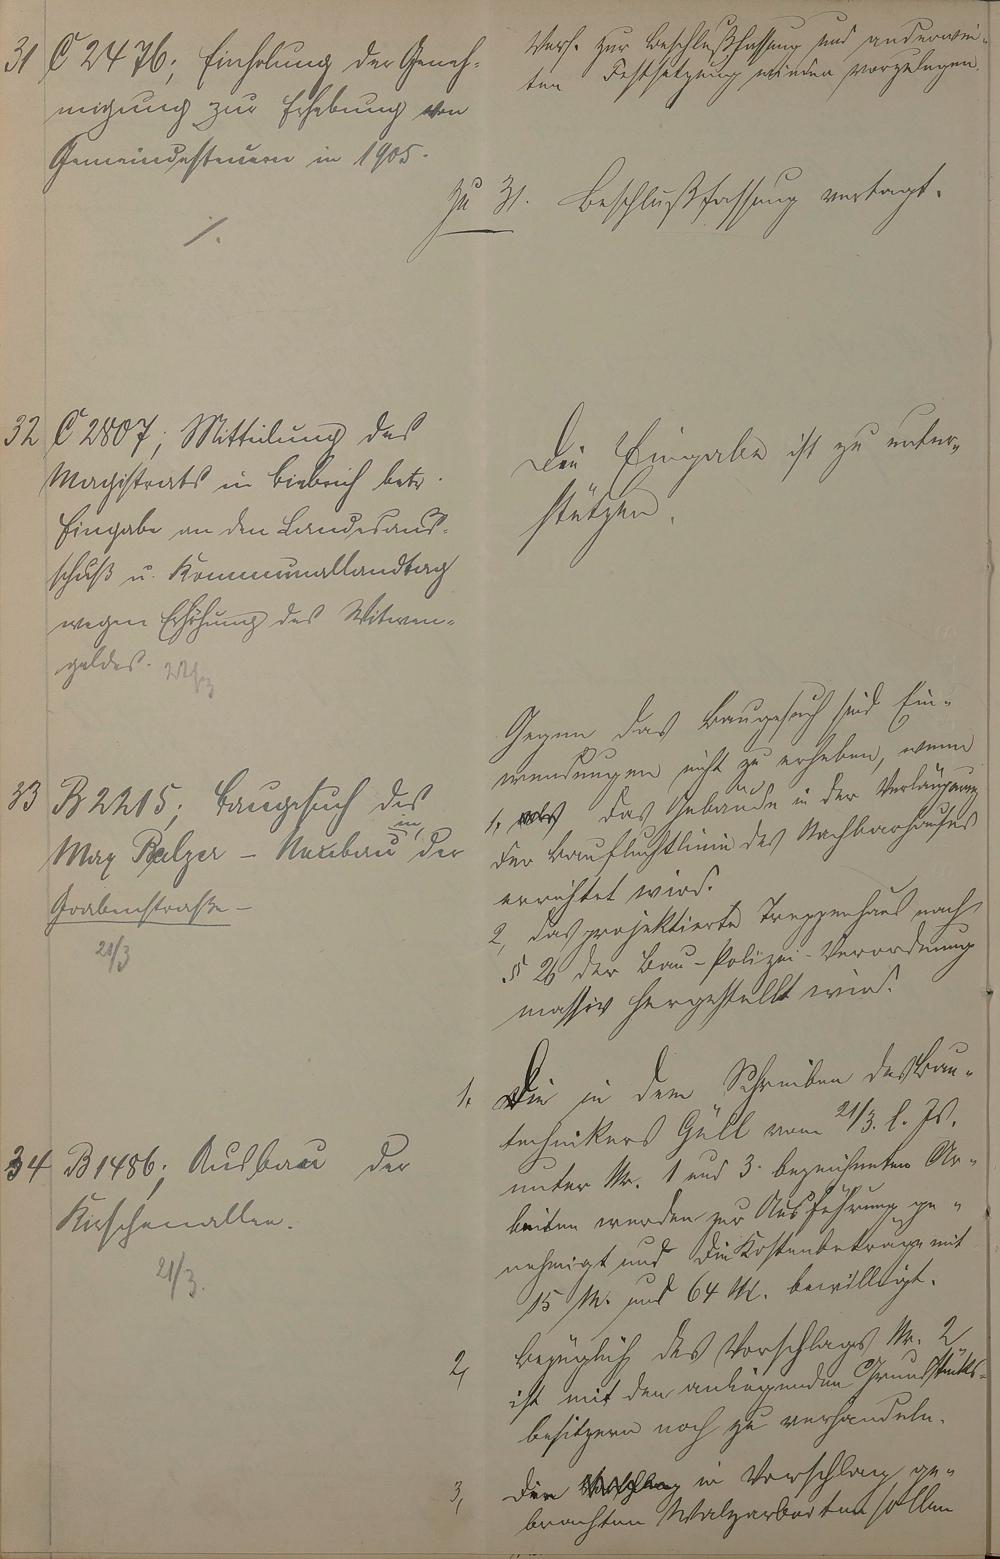 Vers. zur Beschlußfassung und anderwei-
ten Festsetzung wieder vorzulegen.
31 C 2476; Einholung der Geneh-
migung zur Erhebung von
Gemeindesteuern in 1905.
Zu 31. Beschlußfassung vertagt.
32 C 2807; Mitteilung des
Magistrats in Biebrich betr.
Eingabe an den Landesaus-
schuß u. Kommunallandtag
wegen Erhöhung des Witwen-
geldes.
Die Eingabe ist zu unter-
stützen.
33 B 2215; Baugesuch des
Max Balzer – Neubau in der
Grabenstraße –
21/3
Gegen das Baugesuch sind Ein-
wendungen nicht zu erheben, wenn
1, das Gebäude in der Verlängerung
der Baufluchtlinie des Nachbarhauses
errichtet wird.
2, das projektierte Treppenhaus nach
§ 26 der Bau-Polizei-Verordnung
massiv hergestellt wird.
34 B 1486; Ausbau der
Kirschenallee.
21/3.
1, Die in dem Schreiben des Bau-
technikers Güll vom 21/3. l. Js.
unter Nr. 1 und 3 bezeichneten Ar-
beiten werden zur Ausführung ge-
nehmigt und die Kostenbeträge mit
15 M. und 64 M. bewilligt.
2, Bezüglich des Vorschlags Nr. 2
ist mit den anliegenden Grundstücks-
besitzern noch zu verhandeln.
3, Die in Vorschlag ge-
brachten Walzarbeiten sollen